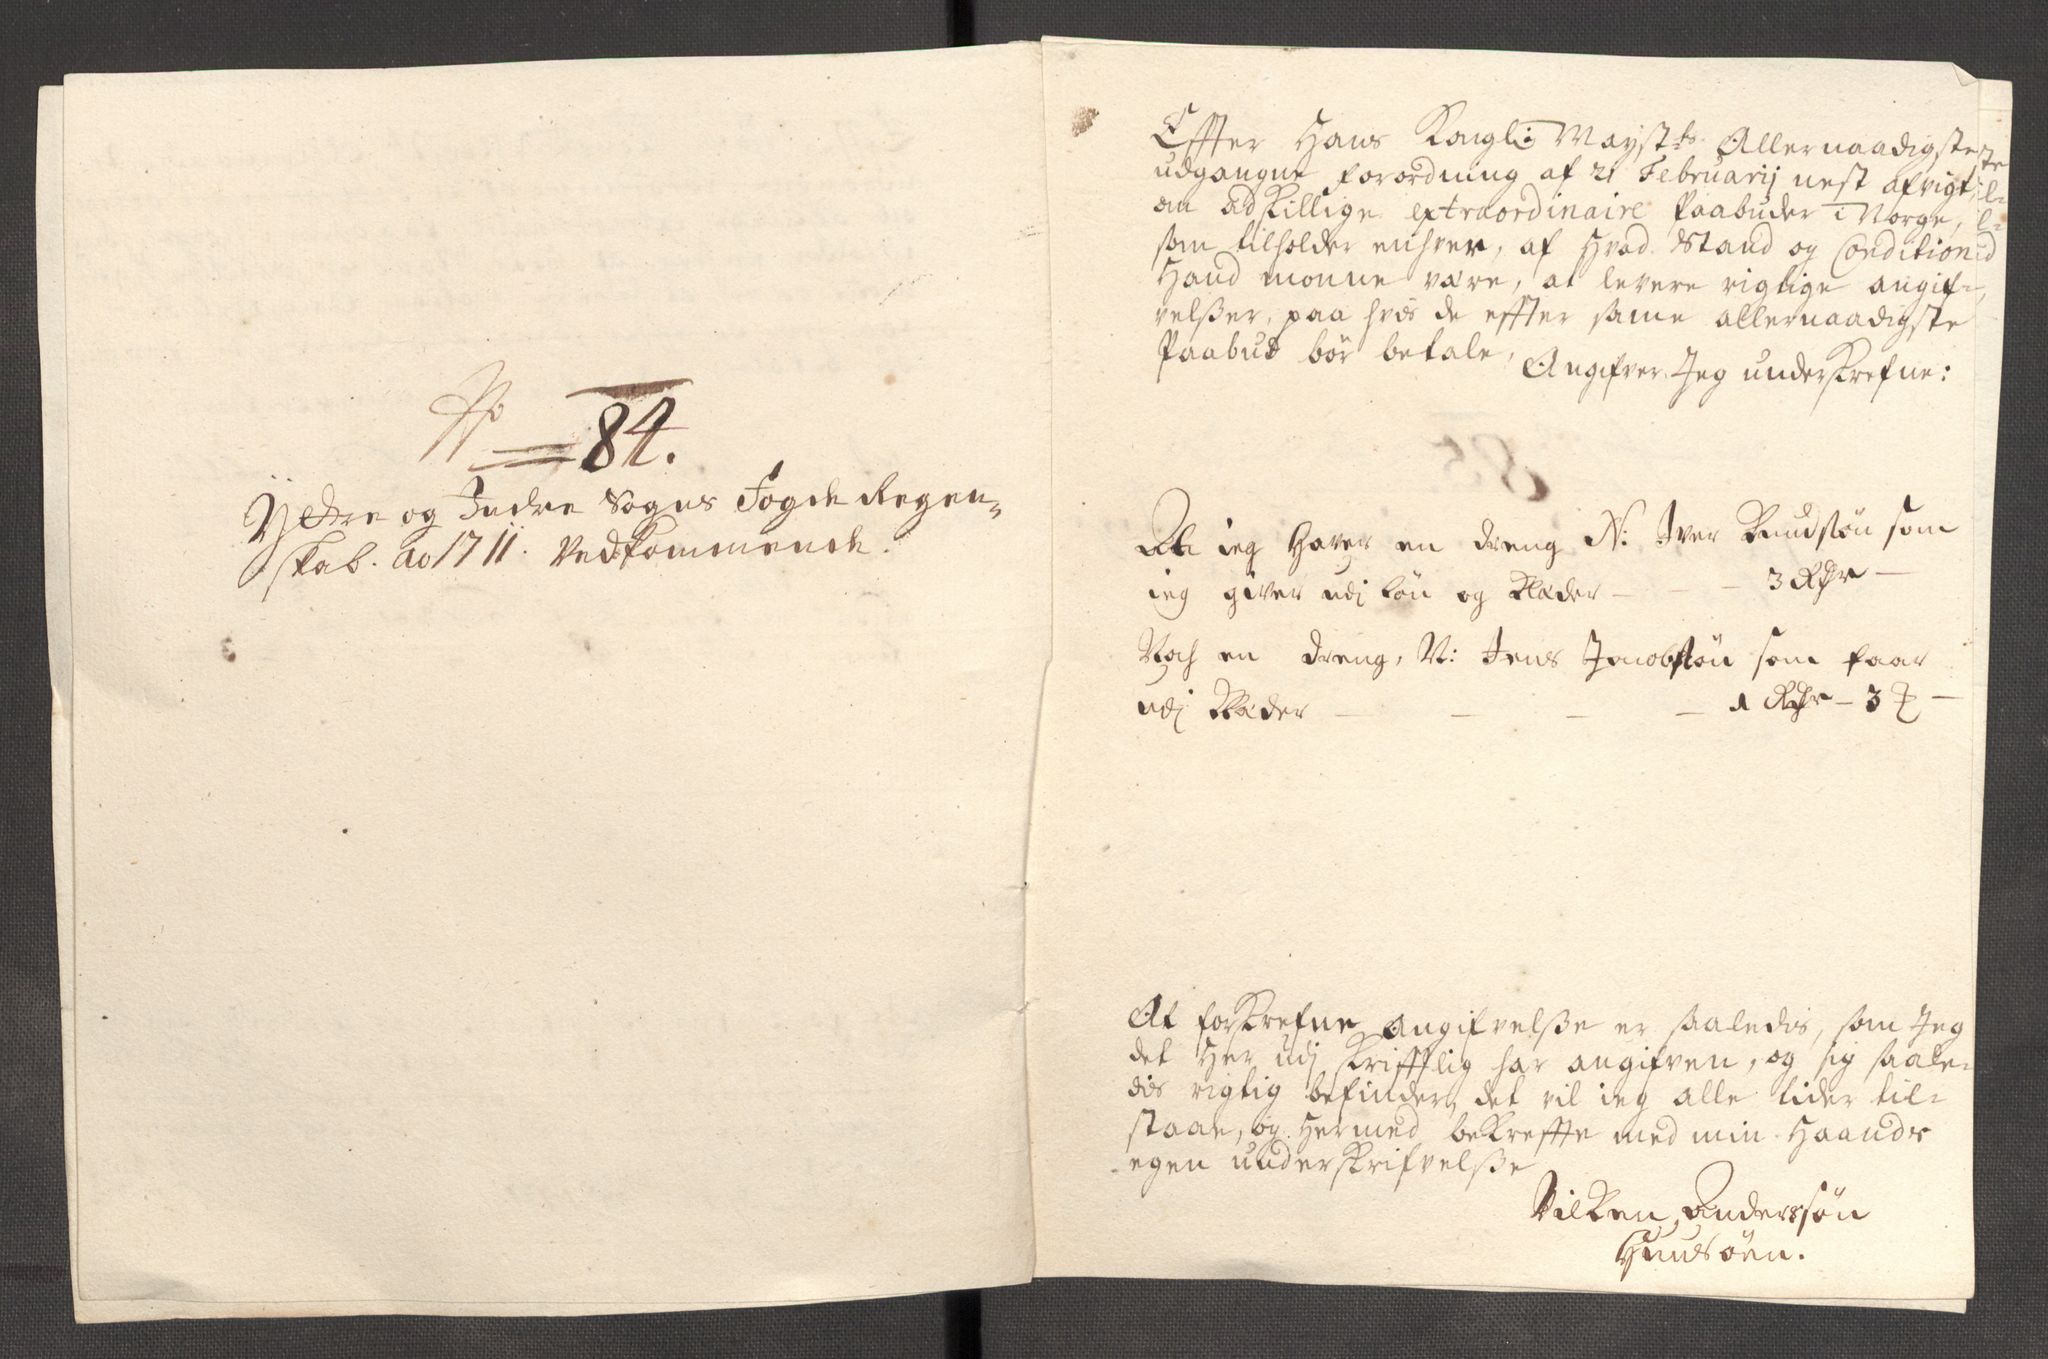 No 84.
Ÿttre og Indre Sogns Fogde Regen-
skab. ao 1711. vedkommende.
Effter Hans Kongl: Mayst:ts Allernaadigste
udgangne forordning af 21 Februarij nest afvigt,
om adskillige extraordinaire Paabuder i Norge,
som tilholder enhver, af hvad Stand og Condition
Hand monne være, at levere rigtige angif-
velßer, paa hvis de effter same allernaadigste
Paabud bör betale,
Angifver Jeg underskrefne:
At ieg haver en dreng N: Iver Knudsøn som
ieg giver udj Løn og Klæder - - - 3 Rdr -
Noch en dreng, N: Jens Jacobsøn som faar
udj Klæder - - - - 1 Rdr - 3 -
At forskrefne angifvelße er saaledis, som Jeg
det Her udj skrifftlig har angifven, og sig saale-
dis rigtig befinder, det vil ieg alle tider til-
staae, og Hermed bekreffte med min Haands
egen underskrifvelße
Vilken Anderssøn
Huusøen.